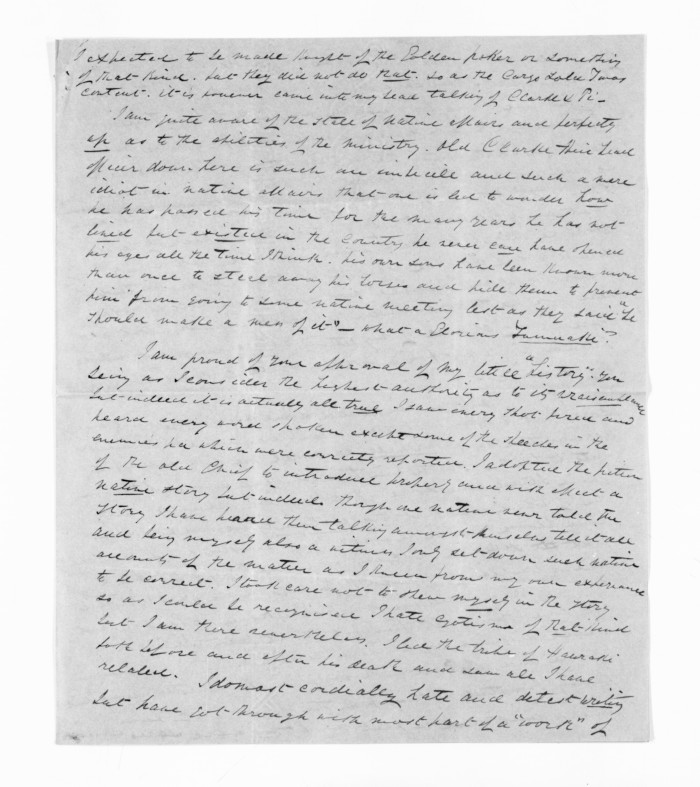 I expected to be made Knight of the Golden poker or something
of that kind. but they did not do that. so as the Cargo sold I was
content. it is however came into my head talking of Clarke & Ti-
I am quite aware of the state of native affairs and perfectly
up as to the abilities of the ministry. Old Clarke their head
officer down here is such an imbecile and such a mere
idiot in native affairs that one is led to wonder how
he has passed his time for the many years he has not
lived but existed in the Country he never can have opened
his eyes all the time I think. his own sons have been known more
than once to steal away his horses and hide them to prevent
him from going to some native meeting lest as they said "he
should make a mess of it" - what a Glorious Tumuaki?
I am proud of your approval of my little "history". You
being as I consider the highest authority as to its vraisemblance
but indeed it is actually all true I saw every shot fired and
heard every word spoken except some of the speeches in the
enemies pa which were correctly reported. I adopted the fiction
of the old Chief to introduce properly and with effect a
native story but indeed though one native never told the
story I have heard them talking amongst themselves tell it all
and being myself also a witness I only set down such native
accounts of the matter as I knew from my own experience
to be correct. I took care not to shew myself in the story
so as I could be recognised I hate egotisms of that kind
but I am there nevertheless. I led the tribe of Hauraki
both before and after his death and saw all I have
related. I do most cordially hate and detest writing
but have got through with most part of a "work" of